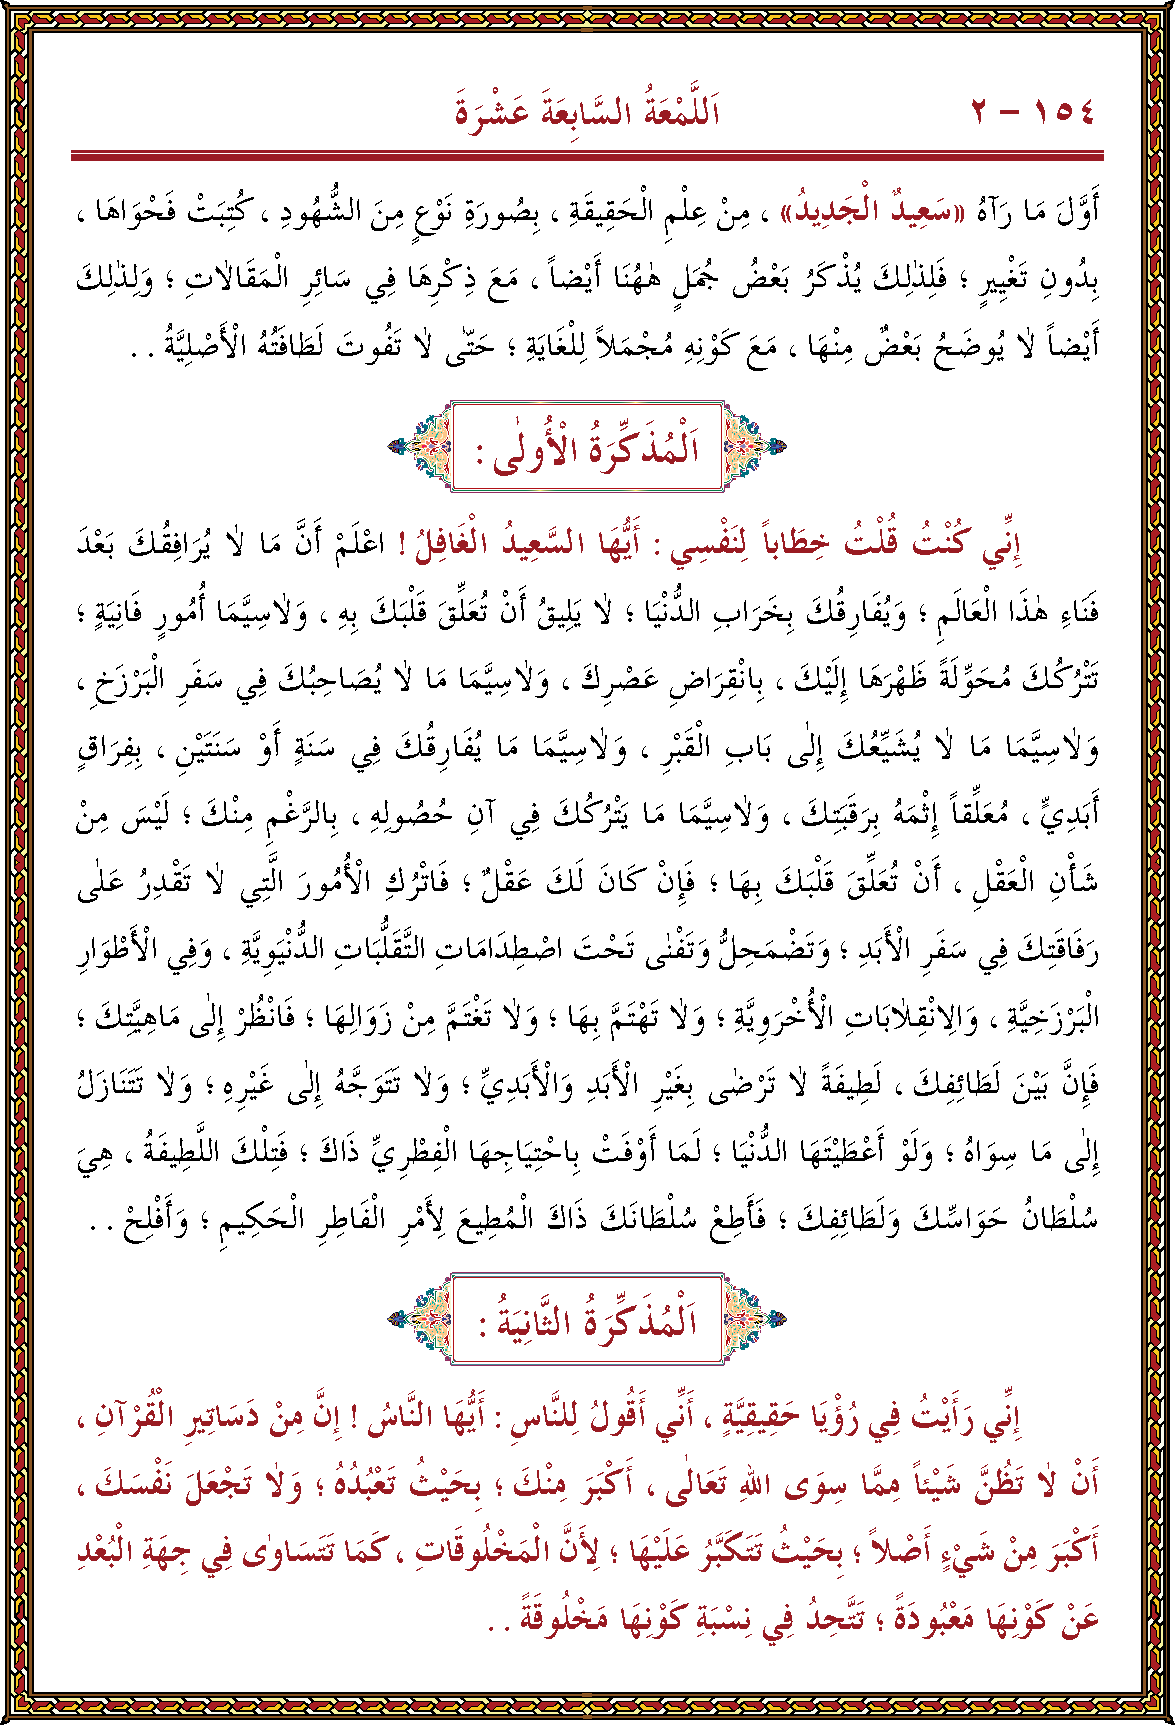 ١٥٤ - ٢ اَللَّمْعَةُ السَّابِعَةَ عَشْرَةَ
أَوَّلَ مَا رَآهُ «سَعِيدٌ الْجَدِيدُ» ، مِنْ عِلْمِ الْحَقِيقَةِ ، بِصُورَةِ نَوْعٍ مِنَ الشُّهُودِ ، كُتِبَتْ فَحْوَاهَا ،
بِدُونِ تَغْيِيرٍ ؛ فَلِذٰلِكَ يُذْكَرُ بَعْضُ جُمَلٍ هٰهُنَا أَيْضاً ، مَعَ ذِكْرِهَا فِي سَائِرِ الْمَقَالَاتِ ؛ وَلِذٰلِكَ
أَيْضاً لَا يُوضَحُ بَعْضٌ مِنْهَا ، مَعَ كَوْنِهِ مُجْمَلاً لِلْغَايَةِ ؛ حَتّٰى لَا تَفُوتَ لَطَافَتُهُ الْأَصْلِيَّةُ . .
اَلْمُذَكِّرَةُ الْأُولٰى :
إِنِّي كُنْتُ قُلْتُ خِطَاباً لِنَفْسِي : أَيُّهَا السَّعِيدُ الْغَافِلُ ! اعْلَمْ أَنَّ مَا لَا يُرَافِقُكَ بَعْدَ
فَنَاءِ هٰذَا الْعَالَمِ ؛ وَيُفَارِقُكَ بِخَرَابِ الدُّنْيَا ؛ لَا يَلِيقُ أَنْ تُعَلِّقَ قَلْبَكَ بِهِ ، وَلَاسِيَّمَا أُمُورٍ فَانِيَةٍ ؛
تَتْرُكُكَ مُحَوِّلَةً ظَهْرَهَا إِلَيْكَ ، بِانْقِرَاضِ عَصْرِكَ ، وَلَاسِيَّمَا مَا لَا يُصَاحِبُكَ فِي سَفَرِ الْبَرْزَخِ ،
وَلَاسِيَّمَا مَا لَا يُشَيِّعُكَ إِلٰى بَابِ الْقَبْرِ ، وَلَاسِيَّمَا مَا يُفَارِقُكَ فِي سَنَةٍ أَوْ سَنَتَيْنِ ، بِفِرَاقٍ
أَبَدِيٍّ ، مُعَلِّقاً إِثْمَهُ بِرَقَبَتِكَ ، وَلَاسِيَّمَا مَا يَتْرُكُكَ فِي آنِ حُصُولِهِ ، بِالرَّغْمِ مِنْكَ ؛ لَيْسَ مِنْ
شَأْنِ الْعَقْلِ ، أَنْ تُعَلِّقَ قَلْبَكَ بِهَا ؛ فَإِنْ كَانَ لَكَ عَقْلٌ ؛ فَاتْرُكِ الْأُمُورَ الَّتِي لَا تَقْدِرُ عَلٰى
رَفَاقَتِكَ فِي سَفَرِ الْأَبَدِ ؛ وَتَضْمَحِلُّ وَتَفْنٰى تَحْتَ اصْطِدَامَاتِ التَّقَلُّبَاتِ الدُّنْيَوِيَّةِ ، وَفِي الْأَطْوَارِ
الْبَرْزَخِيَّةِ ، وَالِانْقِلَابَاتِ الْأُخْرَوِيَّةِ ؛ وَلَا تَهْتَمَّ بِهَا ؛ وَلَا تَغْتَمَّ مِنْ زَوَالِهَا ؛ فَانْظُرْ إِلٰى مَاهِيَّتِكَ ؛
فَإِنَّ بَيْنَ لَطَائِفِكَ ، لَطِيفَةً لَا تَرْضٰى بِغَيْرِ الْأَبَدِ وَالْأَبَدِيِّ ؛ وَلَا تَتَوَجَّهُ إِلٰى غَيْرِهِ ؛ وَلَا تَتَنَازَلُ
إِلٰى مَا سِوَاهُ ؛ وَلَوْ أَعْطَيْتَهَا الدُّنْيَا ؛ لَمَا أَوْفَتْ بِاحْتِيَاجِهَا الْفِطْرِيِّ ذَاكَ ؛ فَتِلْكَ اللَّطِيفَةُ ، هِيَ
سُلْطَانُ حَوَاسِّكَ وَلَطَائِفِكَ ؛ فَأَطِعْ سُلْطَانَكَ ذَاكَ الْمُطِيعَ لِأَمْرِ الْفَاطِرِ الْحَكِيمِ ؛ وَأَفْلِحْ . .
اَلْمُذَكِّرَةُ الثَّانِيَةُ :
إِنِّي رَأَيْتُ فِي رُؤْيَا حَقِيقِيَّةٍ ، أَنِّي أَقُولُ لِلنَّاسِ : أَيُّهَا النَّاسُ ! إِنَّ مِنْ دَسَاتِيرِ الْقُرْآنِ ،
أَنْ لَا تَظُنَّ شَيْئاً مِمَّا سِوَى اللهِ تَعَالٰى ، أَكْبَرَ مِنْكَ ؛ بِحَيْثُ تَعْبُدُهُ ؛ وَلَا تَجْعَلَ نَفْسَكَ ،
أَكْبَرَ مِنْ شَيْءٍ أَصْلاً ؛ بِحَيْثُ تَتَكَبَّرُ عَلَيْهَا ؛ لِأَنَّ الْمَخْلُوقَاتِ ، كَمَا تَتَسَاوٰى فِي جِهَةِ الْبُعْدِ
عَنْ كَوْنِهَا مَعْبُودَةً ؛ تَتَّحِدُ فِي نِسْبَةِ كَوْنِهَا مَخْلُوقَةً . .